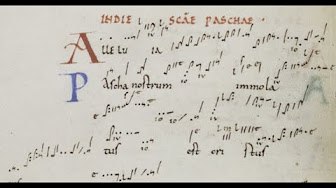 IN DIE SCĒ PASCHAE
ALLE LU IA
Pascha nostrum immola
tus est XPI STUS